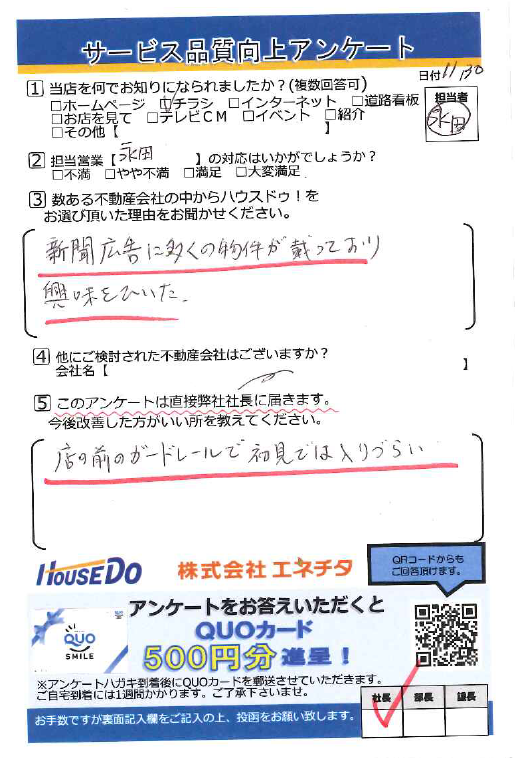 サービス品質向上アンケート
日付 11/30
1 当店を何でお知りになられましたか？(複数回答可)
□ホームページ □チラシ □インターネット □道路看板
□お店を見て □テレビCM □イベント □紹介
□その他【 】
担当者
永田
2 担当営業【 永田 】の対応はいかがでしょうか？
□不満 □やや不満 □満足 □大変満足
3 数ある不動産会社の中からハウスドゥ！を
お選び頂いた理由をお聞かせください。
新聞広告に多くの物件が載っており
興味をひいた。
4 他にご検討された不動産会社はございますか？
会社名【 】
5 このアンケートは直接弊社社長に届きます。
今後改善した方がいい所を教えてください。
店の前のガードレールで初見では入りづらい
HOUSEDO 株式会社 エネチタ
QRコードからも
ご回答頂けます。
QUO
SMILE
アンケートをお答えいただくと
QUOカード
500円分進呈！
※アンケートハガキ到着後にQUOカードを郵送させていただきます。
ご自宅到着には1週間かかります。ご了承下さいませ。
お手数ですが裏面記入欄をご記入の上、投函をお願い致します。
社長 部長 課長